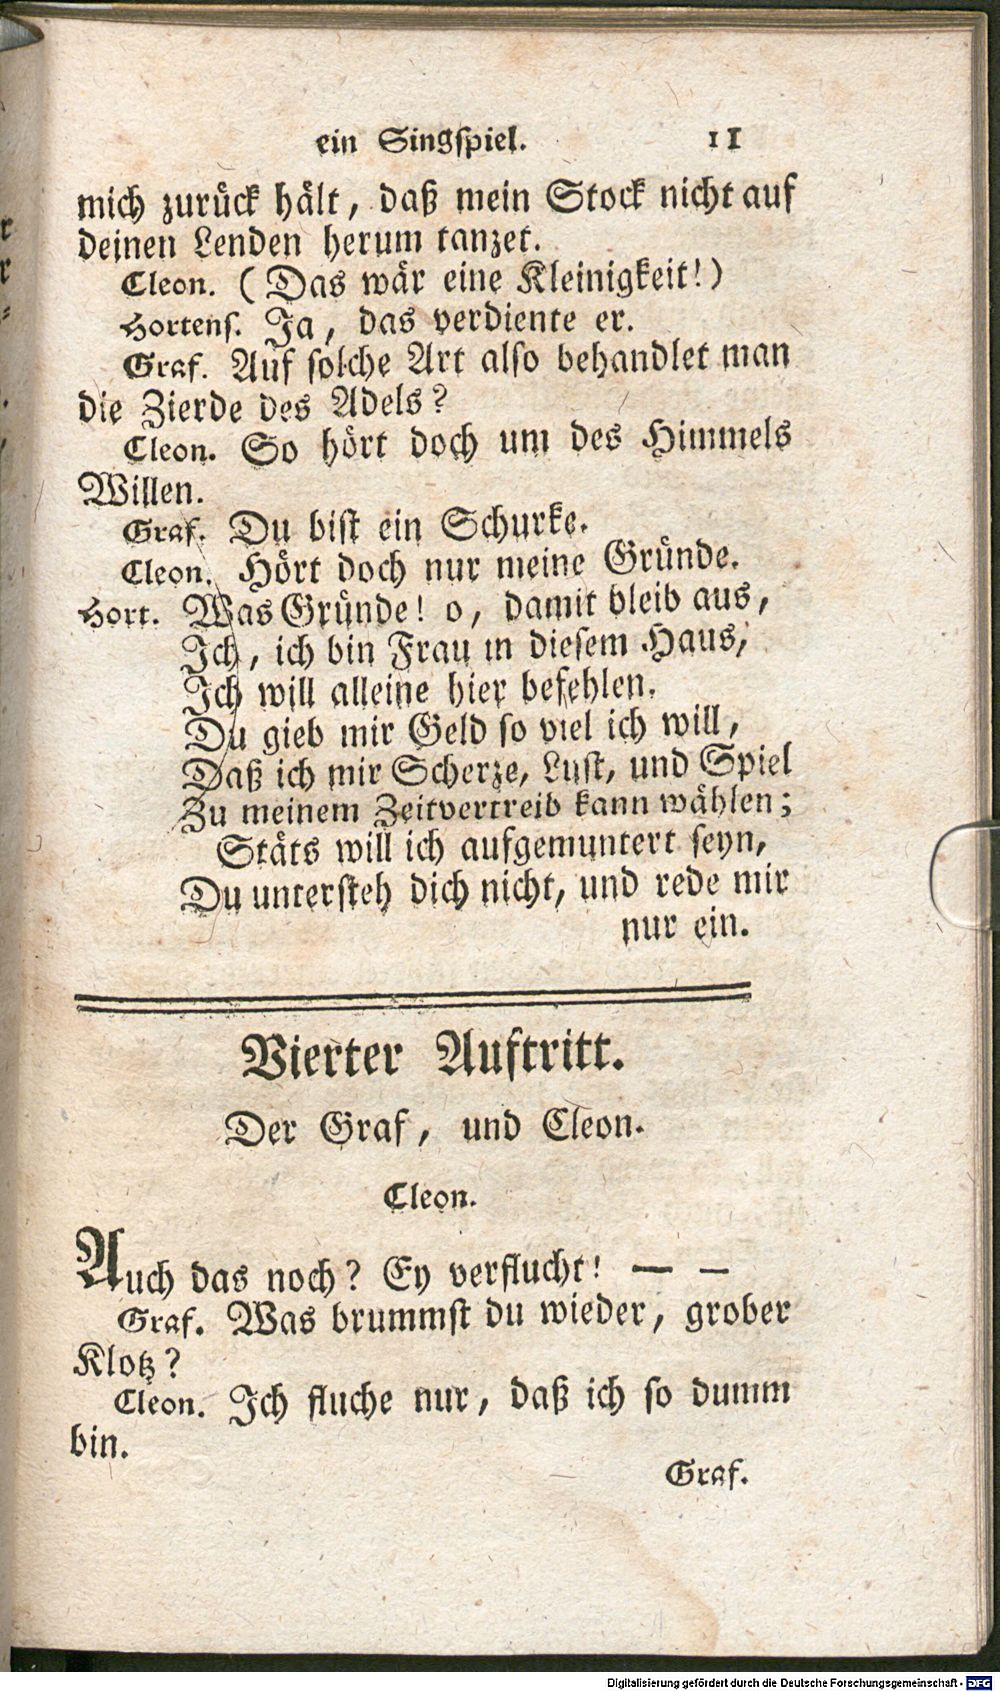 ein Singspiel. 11
mich zurück hält, daß mein Stock nicht auf
deinen Lenden herum tanzet.
Cleon. (Das wär eine Kleinigkeit!)
Hortens. Ja, das verdiente er.
Graf. Auf solche Art also behandlet man
die Zierde des Adels?
Cleon. So hört doch um des Himmels
Willen.
Graf. Du bist ein Schurke.
Cleon. Hört doch nur meine Gründe.
Hort. Was Gründe! o, damit bleib aus,
Ich, ich bin Frau in diesem Haus,
Ich will alleine hier befehlen.
Du gieb mir Geld so viel ich will,
Daß ich mir Scherze, Lust, und Spiel
Zu meinem Zeitvertreib kann wählen;
Stäts will ich aufgemuntert seyn,
Du untersteh dich nicht, und rede mir
nur ein.
Vierter Auftritt.
Der Graf, und Cleon.
Cleon.
Auch das noch? Ey verflucht! — —
Graf. Was brummst du wieder, grober
Klotz?
Cleon. Ich fluche nur, daß ich so dumm
bin.
Graf.
Digitalisierung gefördert durch die Deutsche Forschungsgemeinschaft - DFG